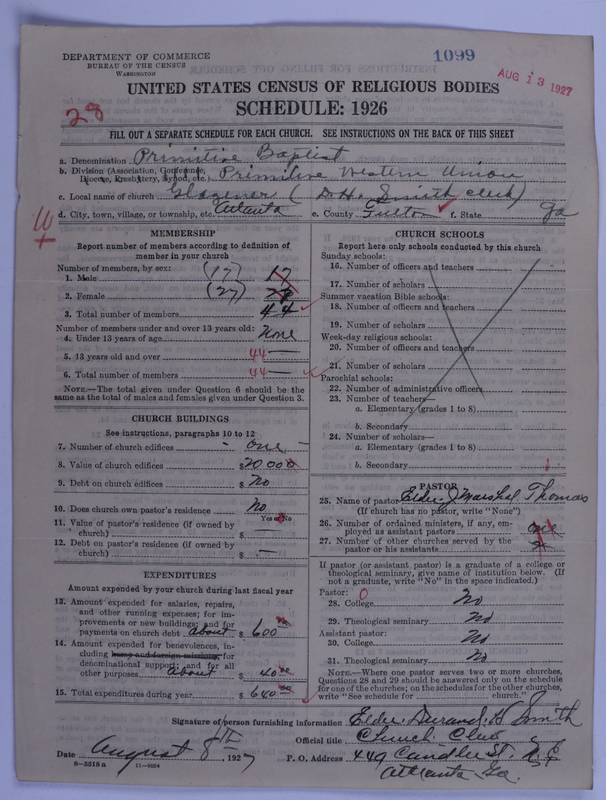 DEPARTMENT OF COMMERCE
BUREAU OF THE CENSUS
WASHINGTON
1099
AUG 13 1927
UNITED STATES CENSUS OF RELIGIOUS BODIES
SCHEDULE: 1926
28
FILL OUT A SEPARATE SCHEDULE FOR EACH CHURCH. SEE INSTRUCTIONS ON THE BACK OF THIS SHEET
a. Denomination Primitive Baptist
b. Division (Association, Conference, Diocese, Presbytery, Synod, etc.) Primitive Western Union
c. Local name of church Glazener (D.H. Smith Clerk)
d. City, town, village, or township, etc. Atlanta e. County Fulton f. State Ga
MEMBERSHIP
Report number of members according to definition of
member in your church
Number of members, by sex:
1. Male (17) 17
2. Female (27) 27
3. Total number of members 44
Number of members under and over 13 years old:
4. Under 13 years of age None
5. 13 years old and over 44
6. Total number of members 44
NOTE.—The total given under Question 6 should be the
same as the total of males and females given under Question 3.
CHURCH BUILDINGS
See instructions, paragraphs 10 to 12
7. Number of church edifices one
8. Value of church edifices $20000
9. Debt on church edifices $ No
10. Does church own pastor's residence No
Yes or No
11. Value of pastor's residence (if owned by
church) $ —
12. Debt on pastor's residence (if owned by
church) $ —
EXPENDITURES
Amount expended by your church during last fiscal year
13. Amount expended for salaries, repairs,
and other running expenses; for im-
provements or new buildings; and for
payments on church debt about $ 600
14. Amount expended for benevolences, in-
cluding home and foreign missions, for
denominational support; and for all
other purposes about $ 40
15. Total expenditures during year $ 640
CHURCH SCHOOLS
Report here only schools conducted by this church
Sunday schools:
16. Number of officers and teachers
17. Number of scholars
Summer vacation Bible schools:
18. Number of officers and teachers
19. Number of scholars
Week-day religious schools:
20. Number of officers and teachers
21. Number of scholars
Parochial schools:
22. Number of administrative officers
23. Number of teachers—
a. Elementary (grades 1 to 8)
b. Secondary
24. Number of scholars—
a. Elementary (grades 1 to 8)
b. Secondary
PASTOR
25. Name of pastor Elder J Marshal Thomas
(If church has no pastor, write "None")
26. Number of ordained ministers, if any, em-
ployed as assistant pastors
27. Number of other churches served by the
pastor or his assistants
If pastor (or assistant pastor) is a graduate of a college or
theological seminary, give name of institution below. (If
not a graduate, write "No" in the space indicated.)
Pastor: 0
28. College No
29. Theological seminary No
Assistant pastor:
30. College No
31. Theological seminary No
NOTE.—Where one pastor serves two or more churches,
Questions 28 and 29 should be answered only on the schedule
for one of the churches; on the schedules for the other churches,
write "See schedule for church.")
Signature of person furnishing information Elder Durand H Smith
Official title Church Clerk
Date August 8th, 1927 P. O. Address 449 Candler St. N.E
Atlanta Ga.
8-5518 a 11-9924